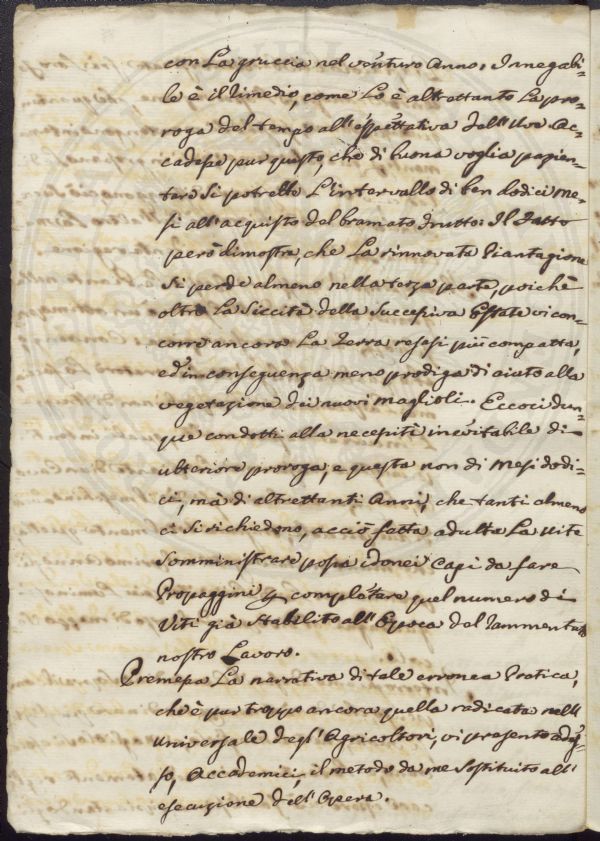 con La gruccia nel venturo Anno: Innegabi-
le è il Rimedio, come Lo è altrettanto La pro-
roga del tempo all'espettativa dell'Uve. Ac-
cadesse pur questo, che di buona voglia pazien-
tare si potrebbe L'intervallo di ben dodici me-
si all'acquisto del bramato frutto: Il Fatto
però dimostra, che La rinnovata Piantagione
si perde almeno nella terza parte, poichè
oltre La Siccità della Successiva Estate vi con-
corre ancora La Terra resasi più compatta,
ed in conseguenza meno prodiga di aiuto alla
vegetazione dei nuovi maglioli. Eccoci dun-
que condotti alla necessità inevitabile di
ulteriore proroga, e questa non di Mesi dodi-
ci, mà di altrettanti Anni, che tanti almeno
ci si richiedono, acciò fatta adulta La Vite
Somministrare possa idonei Capi da fare
Propaggini p completare quel numero di
Viti già Stabilito all'Epoca del Rammentato
nostro Lavoro.
Premessa La narrativa di tale erronea Pratica,
che è pur troppo ancora quella radicata nell'
universale degl'Agricoltori, vi presento ades-
so, Accademici, il metodo da me Sostituito all'
esecuzione dell'Opera.